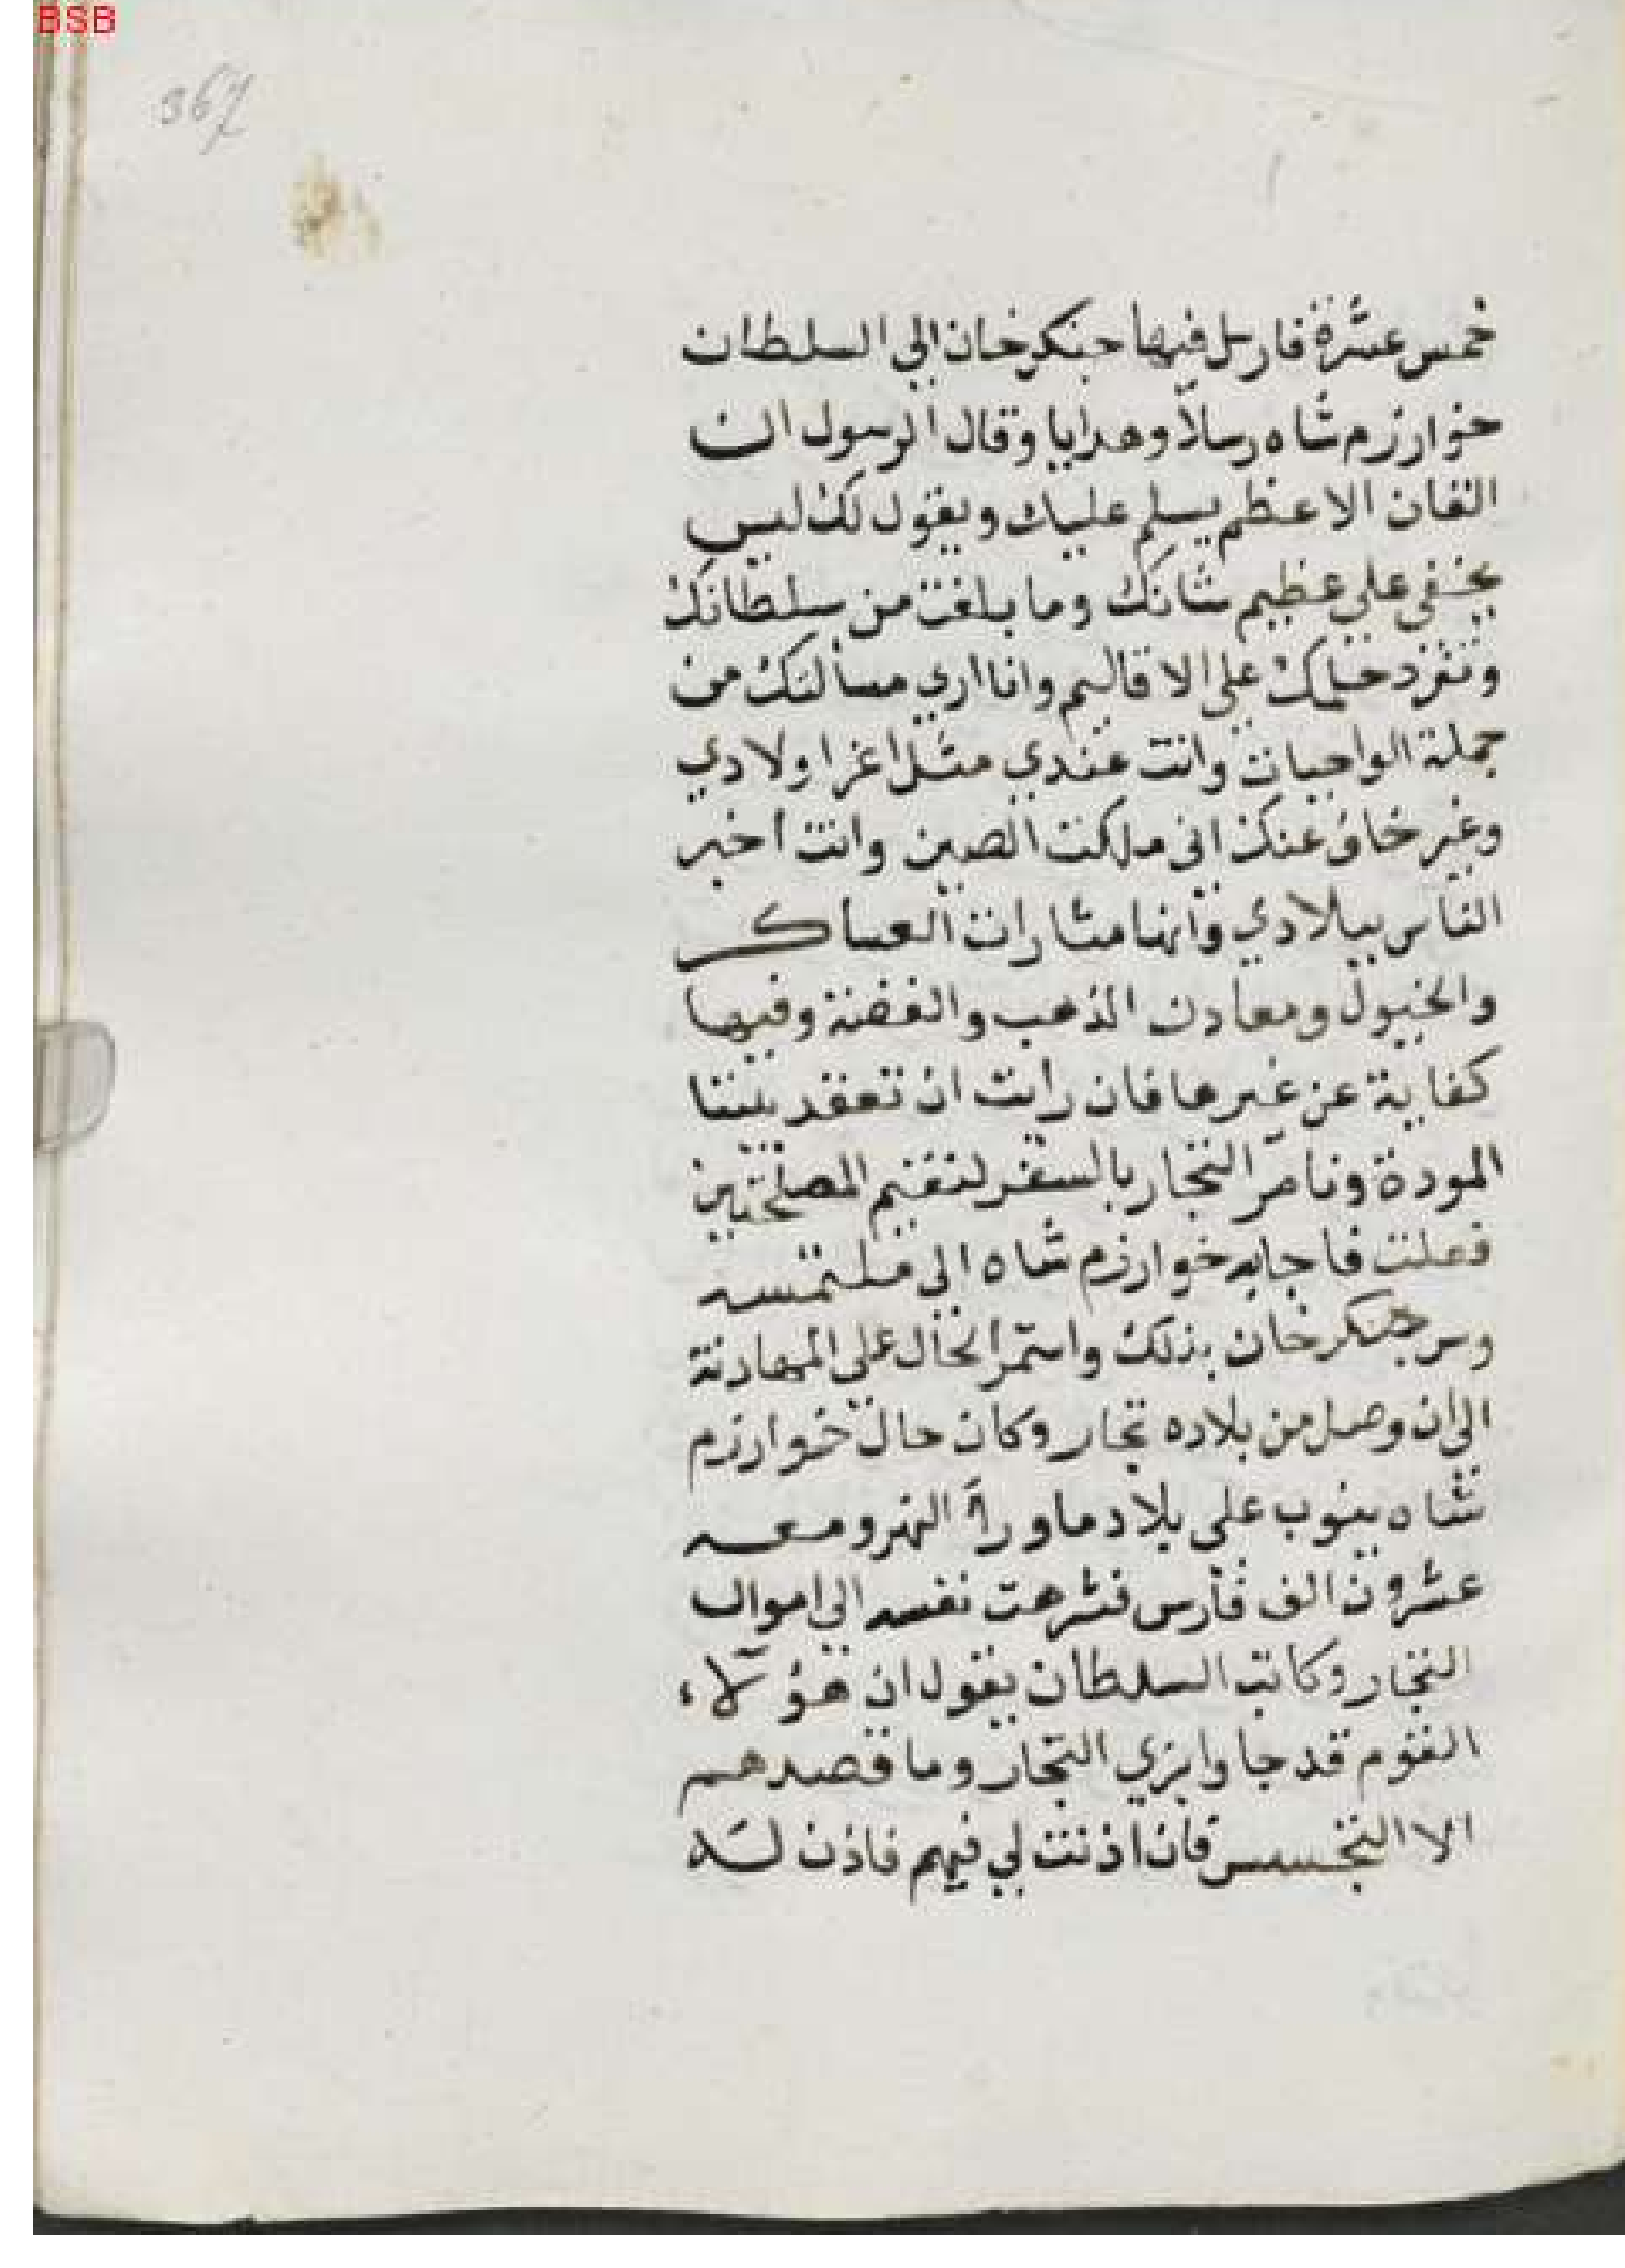 BSB
367
خمس عشرة فارسل فيها جنكرخان الي السلطان
خوارزم شاه رسلاً وهدايا وقال الرسول ان
القان الاعظم يسلم عليك ويقول لك ليس
يخفي علي عظيم شانك وما بلغت من سلطانك
وتفرد حكمك على الاقاليم وانا اري مسالتك من
جملة الواجبات وانت عندي مثل اعز اولادي
وغير خاف عنك اني ملكت الصين وانت أخبر
الناس ببلادي وانها مثارات العساكر
والخيول ومعادن الذهب والفضة وفيها
كفاية عن غيرها فان رايت ان تعقد بيننا
المودة ونامر التجار بالسفر لتغنم المصلحتين
فعلت فاجابه خوارزم شاه الى ملتمسه
وسر جنكرخان بذلك واستمر الحال على المهادنة
الى ان وصل من بلاده تجار وكان خال خوارزم
شاه ينوب على بلاد ما ورآ النهر ومعه
عشرون الف فارس فشرهت نفسه الي اموال
التجار وكاتب السلطان يقول ان هؤلاء
القوم قد جاوا بزي التجار وما قصدهم
الا التجسس فان اذنت لي فيهم فاذن له